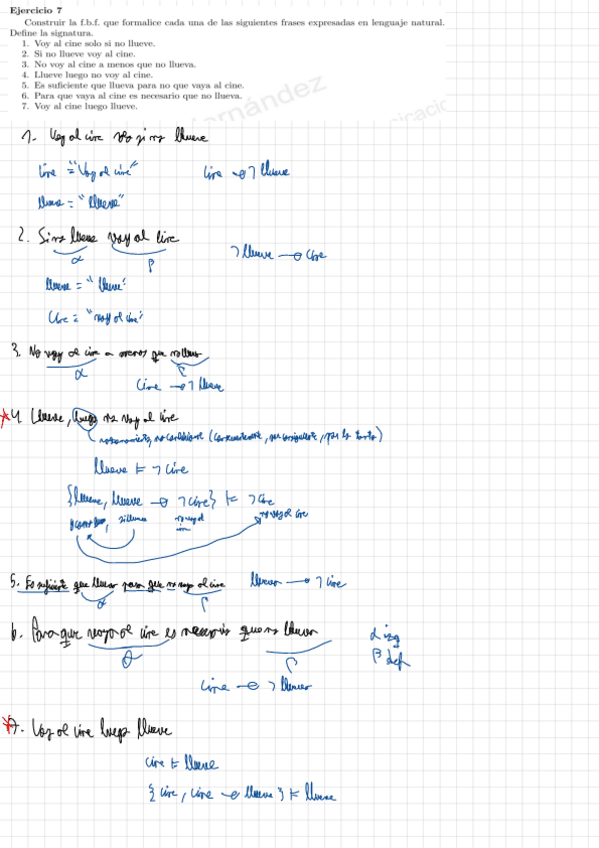 Ejercicio 7
Construir la f.b.f. que formalice cada una de las siguientes frases expresadas en lenguaje natural.
Define la signatura.
1. Voy al cine solo si no llueve.
2. Si no llueve voy al cine.
3. No voy al cine a menos que no llueva.
4. Llueve luego no voy al cine.
5. Es suficiente que llueva para no que vaya al cine.
6. Para que vaya al cine es necesario que no llueva.
7. Voy al cine luego llueve.
1. Voy al cine solo si no llueve
cine = "Voy al cine" cine → ¬ llueve
llueve = "llueve"
2. Si no llueve voy al cine
α β ¬ llueve → cine
llueve = "llueve"
cine = "voy al cine"
3. No voy al cine a menos que no llueva
α β
cine → ¬ llueve
*4. Llueve, luego no voy al cine
razonamiento, no condicional (consecuentemente, por consiguiente, por lo tanto)
llueve ⊨ ¬ cine
{llueve, llueve → ¬ cine} ⊨ ¬ cine
si llueve no voy al cine no voy al cine
5. Es suficiente que llueva para que no vaya al cine llueve → ¬ cine
α β
6. Para que vaya al cine es necesario que no llueva α izq
β β der
cine → ¬ llueve
*7. Voy al cine luego llueve
cine ⊨ llueve
{cine, cine → llueve} ⊨ llueve